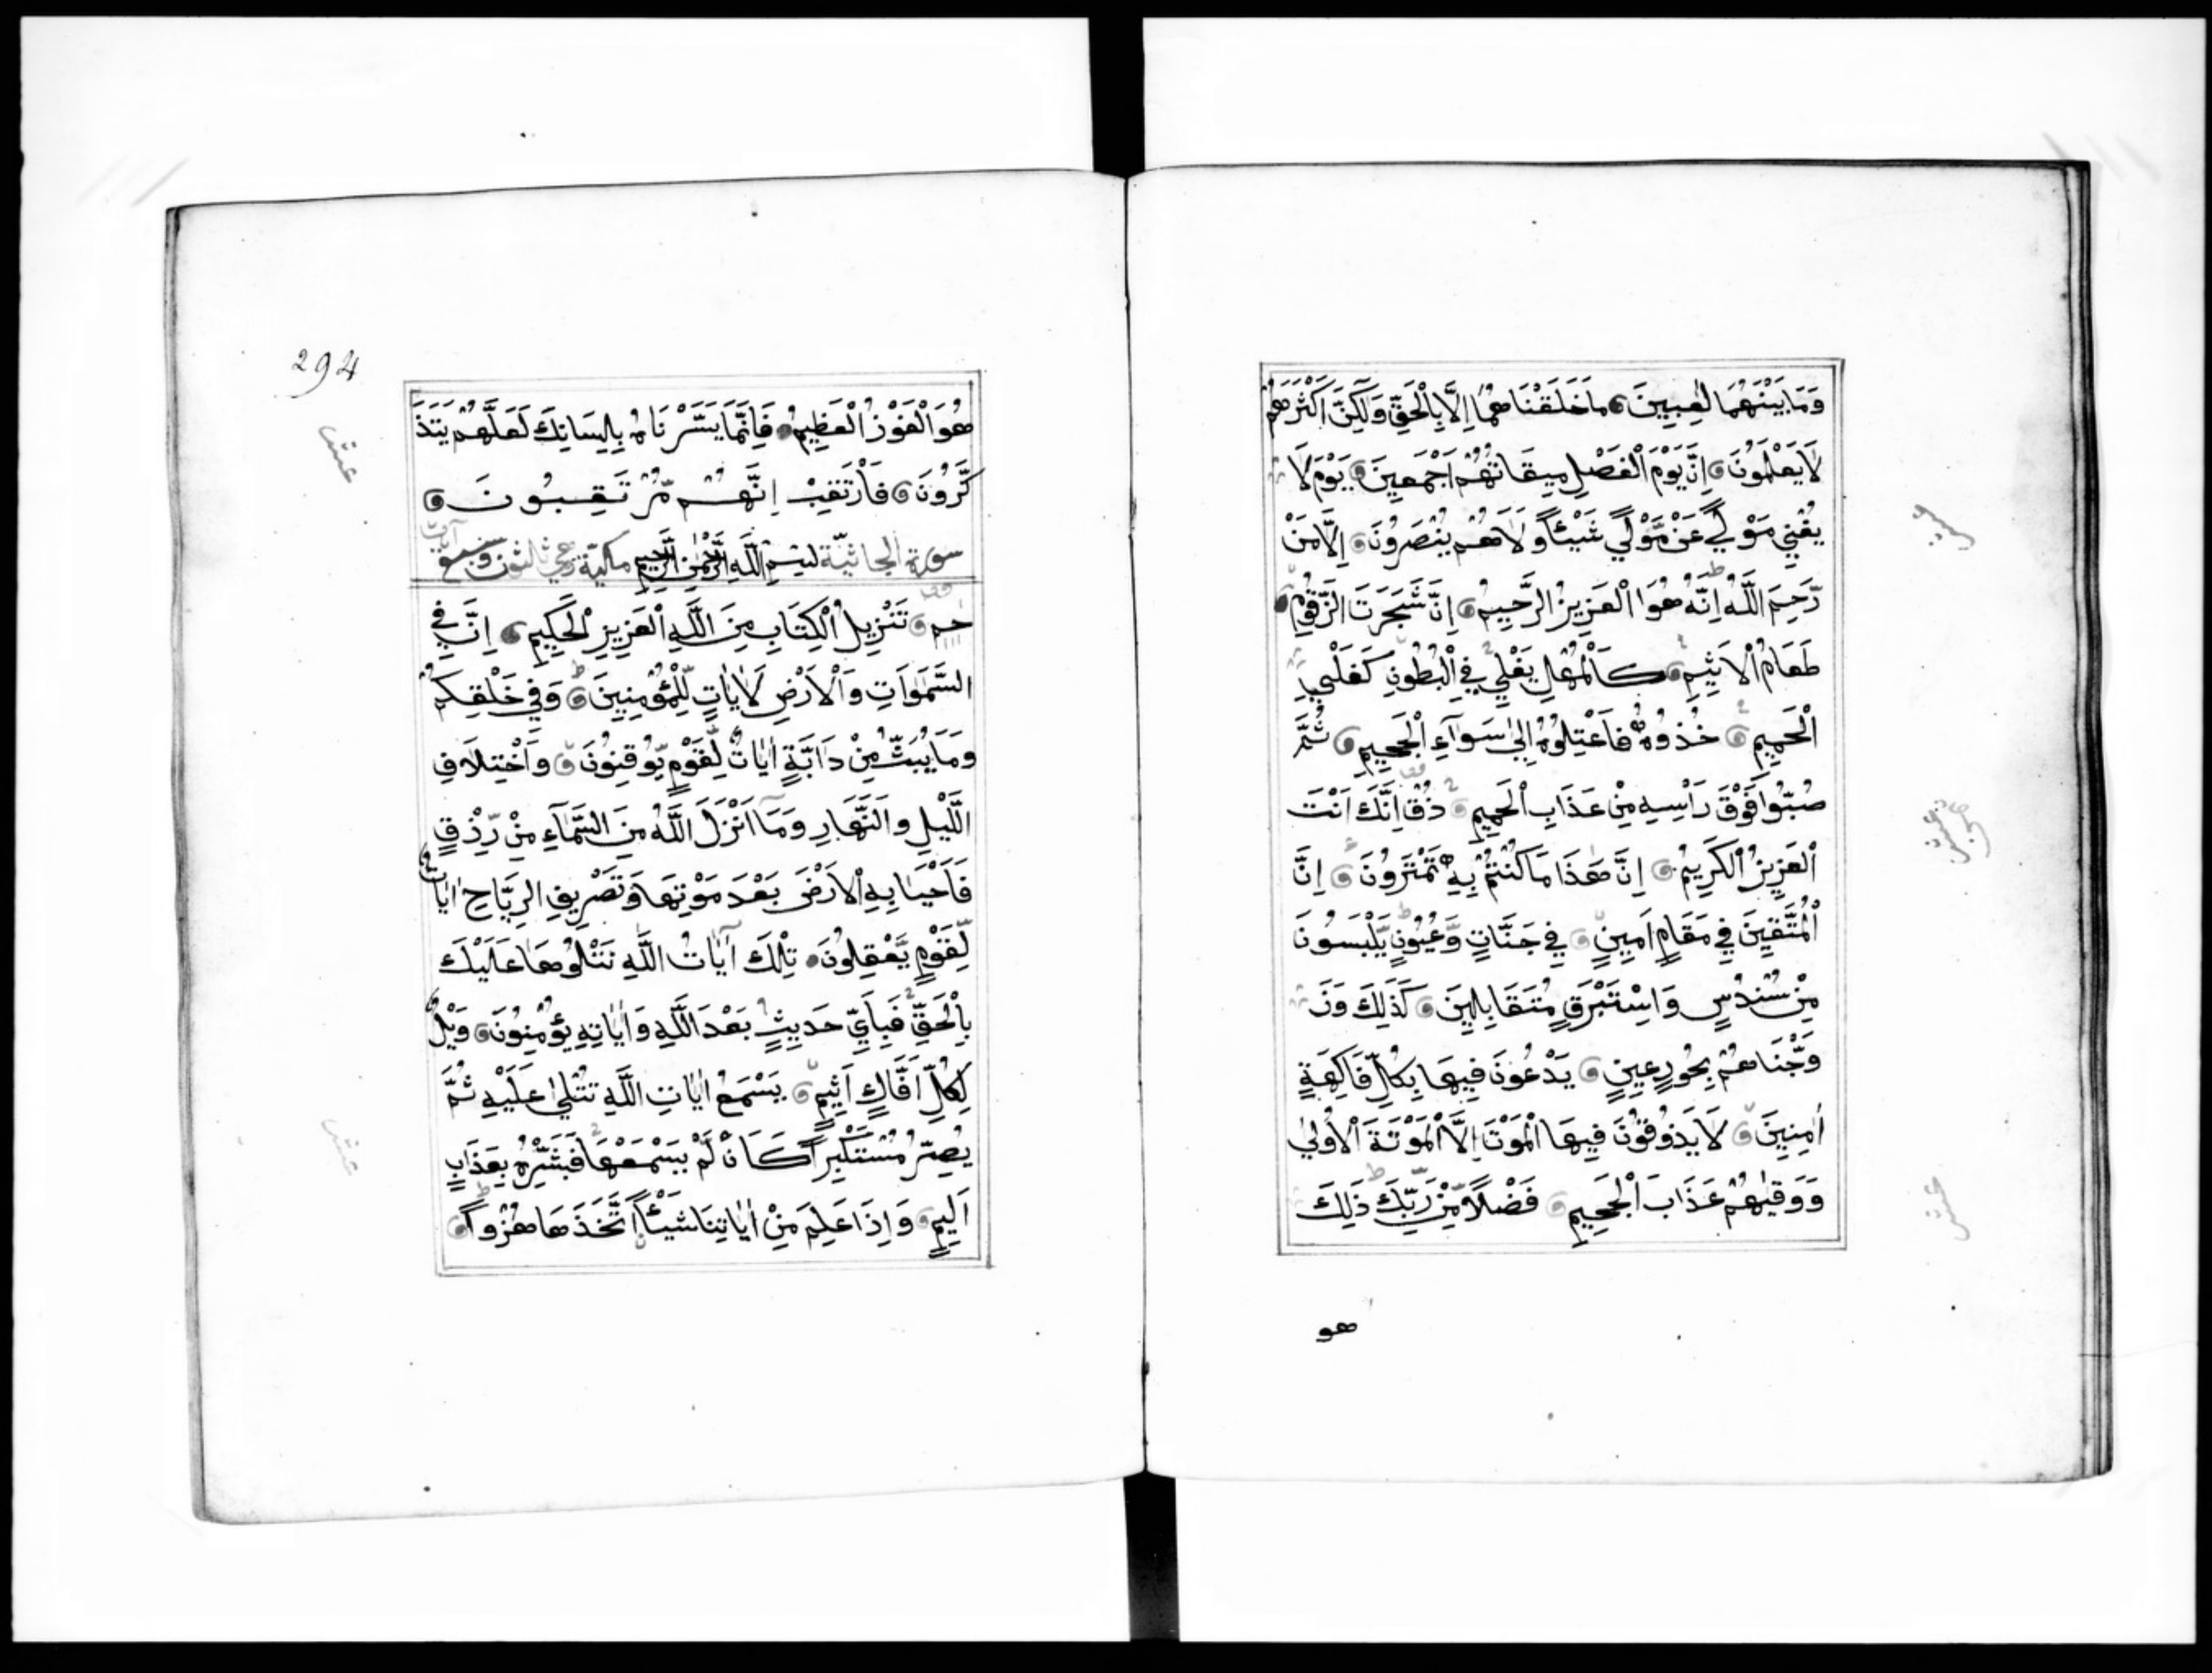 وَمَا بَيْنَهُمَا لٰعِبِينَ مَا خَلَقْنَاهُمَا اِلَّا بِالْحَقِّ وَلٰكِنَّ اَكْثَرَهُمْ
لَا يَعْلَمُونَ اِنَّ يَوْمَ الْفَصْلِ مِيقَاتُهُمْ اَجْمَعِينَ يَوْمَ لَا
يُغْنِي مَوْلًي عَنْ مَّوْلًي شَيْئًا وَلَا هُمْ يُنْصَرُونَ اِلَّا مَنْ
رَّحِمَ اللَّه اِنَّهُ هُوَ الْعَزِيزُ الرَّحِيمُ اِنَّ شَجَرَتَ الزَّقُّومِ
طَعَامُ الْاَثِيمِ كَالْمُهْلِ يَغْلِي فِي الْبُطُونِ كَغَلْيِ
الْحَمِيمِ خُذُوهُ فَاعْتِلُوهُ اِلٰى سَوَآءِ الْجَحِيمِ ثُمَّ
صُبّوُا فَوْقَ رَاْسِهِ مِنْ عَذَابِ الْحَمِيمِ ذُقْ اِنَّكَ اَنْتَ
الْعَزِيزُ الْكَرِيمُ اِنَّ هٰذَا مَا كُنْتُمْ بِهِ تَمْتَرُونَ اِنَّ
الْمُتَّقِينَ فِي مَقَامٍ اَمِينٍ فِي جَنَّاتٍ وَّعُيُونٍ يَّلْبَسُونَ
مِنْ سُنْدُسٍ وَاسْتَبْرَقٍ مُتَقَابِلِينَ كَذٰلِكَ وَزَ
وَّجْنَاهُمْ بِحُورٍ عِينٍ يَدْعُونَ فِيهَا بِكُلِّ فَاكِهَةٍ
اٰمِنِينَ لَا يَذُوقُونَ فِيهَا الْمَوْتَ اِلَّا الْمَوْتَةَ الْاُولٰى
وَوَقٰيهُمْ عَذَابَ الْجَحِيمِ فَضْلًا مِّنْ رَبِّكَ ذٰلِكَ
هو
294
هُوَ الْفَوْزُ الْعَظِيمُ فَاِنَّمَا يَسَّرْنَاهُ بِلِسَانِكَ لَعَلَّهُمْ يَتَذَ
كَّرُونَ فَارْتَقِبْ اِنَّهُمْ مُّرْتَقِبُونَ
سورة الجاثيّة بسم الله الرحمن الرحيم مكيّة وهي ثلثون وسبع آيات
حٰم تَنْزِيلُ الْكِتَابِ مِنَ اللَّهِ الْعَزِيزِ الْحَكِيمِ اِنَّ فِي
السَّمٰوَاتِ وَالْاَرْضِ لَاٰيَاتٍ لِّلْمُؤْمِنِينَ وَفِي خَلْقِكُمْ
وَمَا يَبُثُّ مِنْ دَابَّةٍ اٰيَاتٌ لِّقَوْمٍ يُّوقِنُونَ وَاخْتِلَافِ
الَّيْلِ وَالنَّهَارِ وَمَا اَنْزَلَ اللَّهُ مِنَ السَّمَآءِ مِنْ رِّزْقٍ
فَاَحْيَا بِهِ الْاَرْضَ بَعْدَ مَوْتِهَا وَتَصْرِيفِ الرِّيَاحِ اٰيَاتٌ
لِّقَوْمٍ يَّعْقِلُونَ تِلْكَ آيَاتُ اللَّهِ نَتْلُوهَا عَلَيْكَ
بِالْحَقِّ فَبِاَيِّ حَدِيثٍ بَعْدَ اللَّهِ وَاٰيَاتِهِ يُؤْمِنُونَ وَيْلٌ
لِكُلِّ اَفَّاكٍ اَثِيمٍ يَسْمَعُ اٰيَاتِ اللَّهِ تُتْلٰى عَلَيْهِ ثُمَّ
يُصِرُّ مُسْتَكْبِرًا كَاَنْ لَّمْ يَسْمَعْهَا فَبَشِّرْهُ بِعَذَابٍ
اَلِيمٍ وَاِذَا عَلِمَ مِنْ اٰيَاتِنَا شَيْئًا اتَّخَذَهَا هُزُوًا
عشر